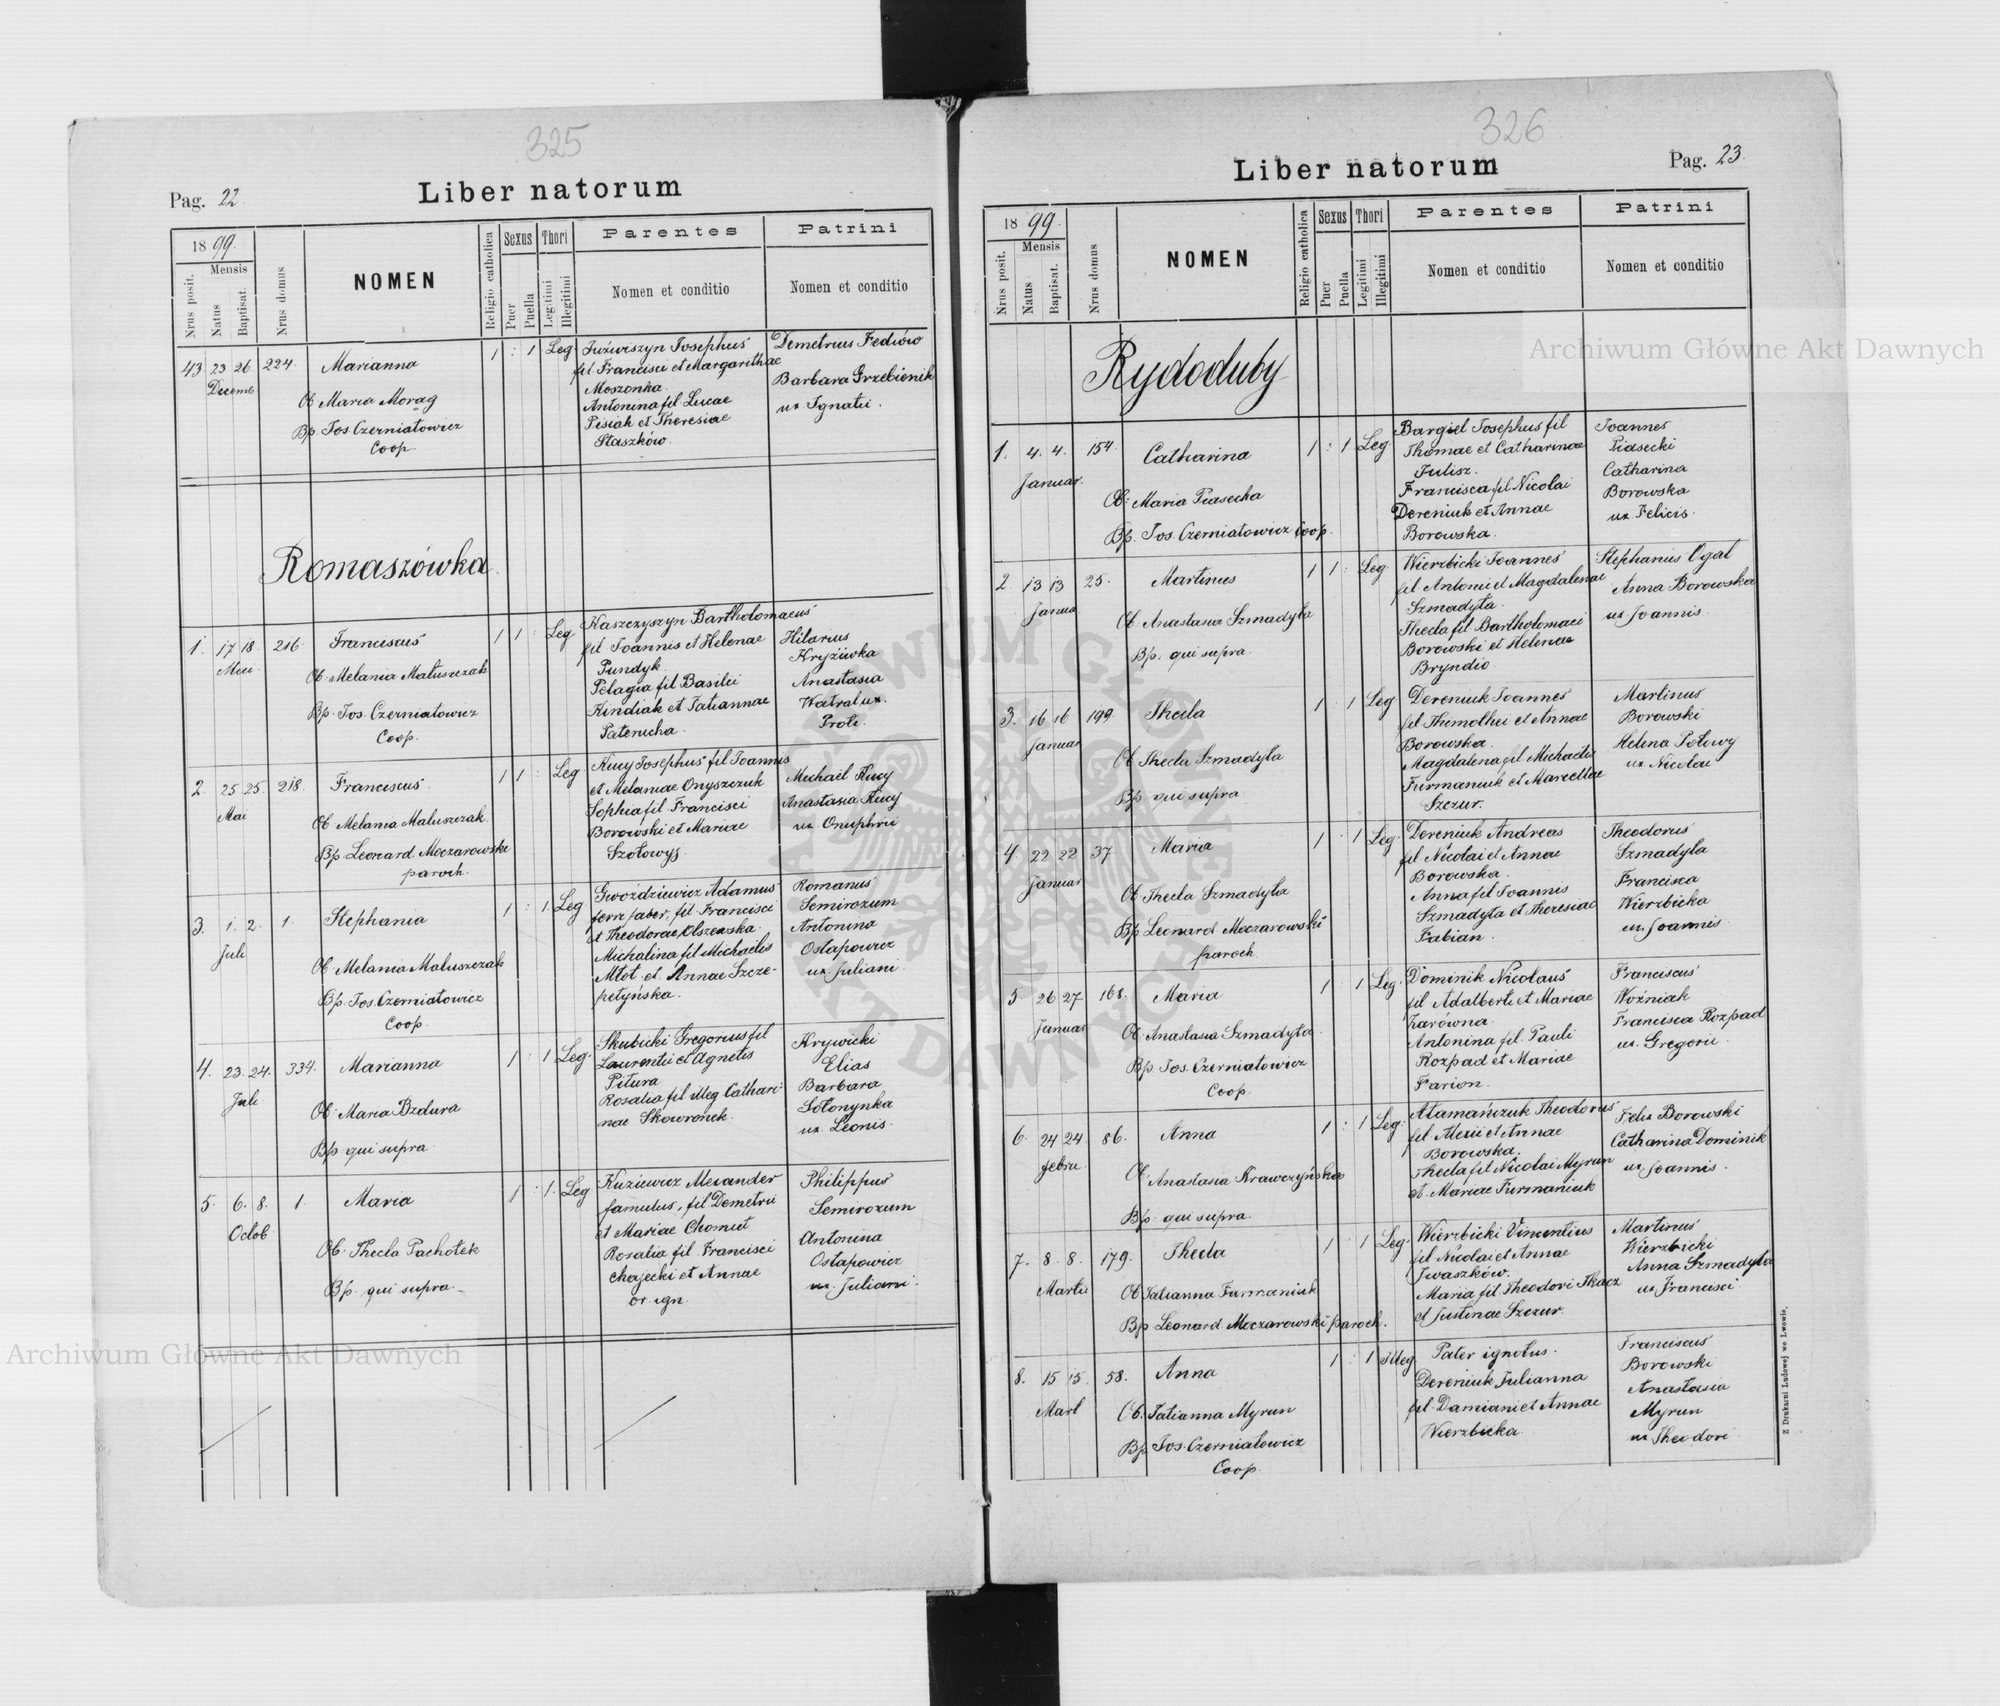 325
Pag. 22.
Liber natorum
18 99.
Nrus posit.
Mensis
Natus
Baptisat.
Nrus domus
NOMEN
Religio catholica
Sexus
Puer
Puella
Thori
Legitimi
Illegitimi
Parentes
Nomen et conditio
Patrini
Nomen et conditio
43 23 26 224. Marianna 1 : 1 Leg.
Decemb
Ob Maria Morag
Bp. Jos Czerniatowicz
Coop.
Juźwiszyn Josephus
fil Francisci et Margarithae
Moszonka.
Antonina fil Lucae
Pisiak et Theresiae
Staszków.
Demetrius Fediów
Barbara Grzebienik
ux Ignatii.
Romaszówka.
1. 17 18. 216. Franciscus 1 1 : Leg
Maii
Ob. Melania Matuszczak
Bp. Jos. Czerniatowicz
Coop.
Kaszczyszyn Bartholomaeus
fil Joannis et Helenae
Pundyk.
Pelagia fil Basilii
Kindiak et Tatiannae
Paterucha.
Hilarius
Kryżiwka
Anastasia
Watral ux.
Proti.
2. 25 25. 218. Franciscus. 1 1 : Leg
Mai
Ob. Melania Matuszczak.
Bp. Leonard Moczarowski
paroch.
Kucy Josephus fil Joannis
et Melaniae Onyszczuk
Sophia fil Francisci
Borowski et Mariae
Szołowyj.
Michael Kucy
Anastasia Kucy
ux Onuphrii
3. 1. 2. 1. Stephania 1 : 1. Leg
Juli
Ob. Melania Matuszczak
Bp. Jos. Czerniatowicz
Coop.
Gwoździewicz Adamus
ferr. faber, fil. Francisci
et Theodorae Olszewska.
Michalina fil Michaelis
Młot et Annae Szcze-
petyńska.
Romanus
Semirozum
Antonina
Ostapowicz
ux. Juliani.
4. 23. 24. 334. Marianna 1 : 1 Leg.
Juli
Ob. Maria Bzdura
Bp qui supra
Skubicki Gregorius fil
Laurentii et Agnetis
Pitura
Rosalia fil illeg Cathari-
nae Skowronek.
Krywicki
Elias
Barbara
Sołonynka
ux. Leonis.
5. 6. 8. 1. Maria 1 : 1. Leg
Octob
Ob. Thecla Pachołek
Bp. qui supra.
Kuziewicz Alexander
famulus, fil Demetrii
et Mariae Chomut
Rosalia fil. Francisci
Chajecki et Annae
or. ign.
Philippus
Semirozum
Antonina
Ostapowicz
ux. Juliani.
326
Liber natorum
Pag. 23.
18 99.
Nrus posit.
Mensis
Natus
Baptisat.
Nrus domus
NOMEN
Religio catholica
Sexus
Puer
Puella
Thori
Legitimi
Illegitimi
Parentes
Nomen et conditio
Patrini
Nomen et conditio
Rydoduby
1. 4. 4. 154. Catharina 1 : 1 Leg.
Januar.
Ob: Maria Piasecka
Bp. Jos. Czerniatowicz Coop.
Bargiel Josephus fil
Thomae et Catharinae
Julisz.
Francisca fil Nicolai
Dereniuk et Annae
Borowska.
Joannes
Piasecki
Catharina
Borowska
ux. Felicis.
2 13 13 25. Martinus 1 1 : Leg.
Janua
Ob. Anastasia Szmadyła
Bp. qui supra.
Wierzbicki Joannes
fil Antonii et Magdalenae
Szmadyła.
Thecla fil Bartholomaei
Borowski et Helenae
Bryndio
Stephanus Ogal
Anna Borowska
ux Joannis.
3. 16 16 199. Thecla 1 : 1 Leg
Januar
Ob Thecla Szmadyła
Bp qui supra.
Dereniuk Joannes
fil Thimothei et Annae
Borowska.
Magdalena fil Michaelis
Furmaniuk et Marcellae
Szczur.
Martinus
Borowski
Helena Połowy
ux. Nicolai
4 22 22 37 Maria 1 : 1 Leg.
Januar
Ob. Thecla Szmadyła
Bp. Leonard Moczarowski
paroch
Dereniuk Andreas
fil Nicolai et Annae
Borowska.
Anna fil Joannis
Szmadyła et Theresiae
Fabian.
Theodorus
Szmadyła
Francisca
Wierzbicka
ux. Joannis
5 26 27 168. Maria 1 : 1 Leg.
Januar
Ob. Anastasia Szmadyła
Bp. Jos. Czerniatowicz
Coop.
Dominik Nicolaus
fil Adalberti et Mariae
Karówna.
Antonina fil. Pauli
Rozpad et Mariae
Farion.
Franciscus
Woźniak
Francisca Rozpad
ux. Gregorii.
6. 24 24. 86. Anna 1 : 1 Leg.
Febru
Ob. Anastasia Krawczyńska
Bp. qui supra.
Atamańczuk Theodorus
fil Alexii et Annae
Borowska.
Thecla fil Nicolai Myrun
et Mariae Furmaniuk
Felix Borowski
Catharina Dominik
ux Joannis.
7. 8. 8. 179. Thecla 1 : 1 Leg.
Martii
Ob Tatianna Furmaniuk
Bp Leonard Moczarowski paroch.
Wierzbicki Vincentius
fil Nicolai et Annae
Iwaszków.
Maria fil Theodori Tkacz
et Justinae Szczur.
Martinus
Wierzbicki
Anna Szmadyła
ux Francisci
8. 15 15. 58. Anna 1 : 1 Illeg
Mart
Ob. Tatianna Myrun
Bp Jos. Czerniatowicz
Coop.
Pater ignotus.
Dereniuk Julianna
fil. Damiani et Annae
Wierzbicka
Franciscus
Borowski
Anastasia
Myrun
ux Theodori.
Z Drukarni Ludowej we Lwowie.
Archiwum Główne Akt Dawnych
Archiwum Główne Akt Dawnych
ARCHIWUM GŁÓWNE AKT DAWNYCH